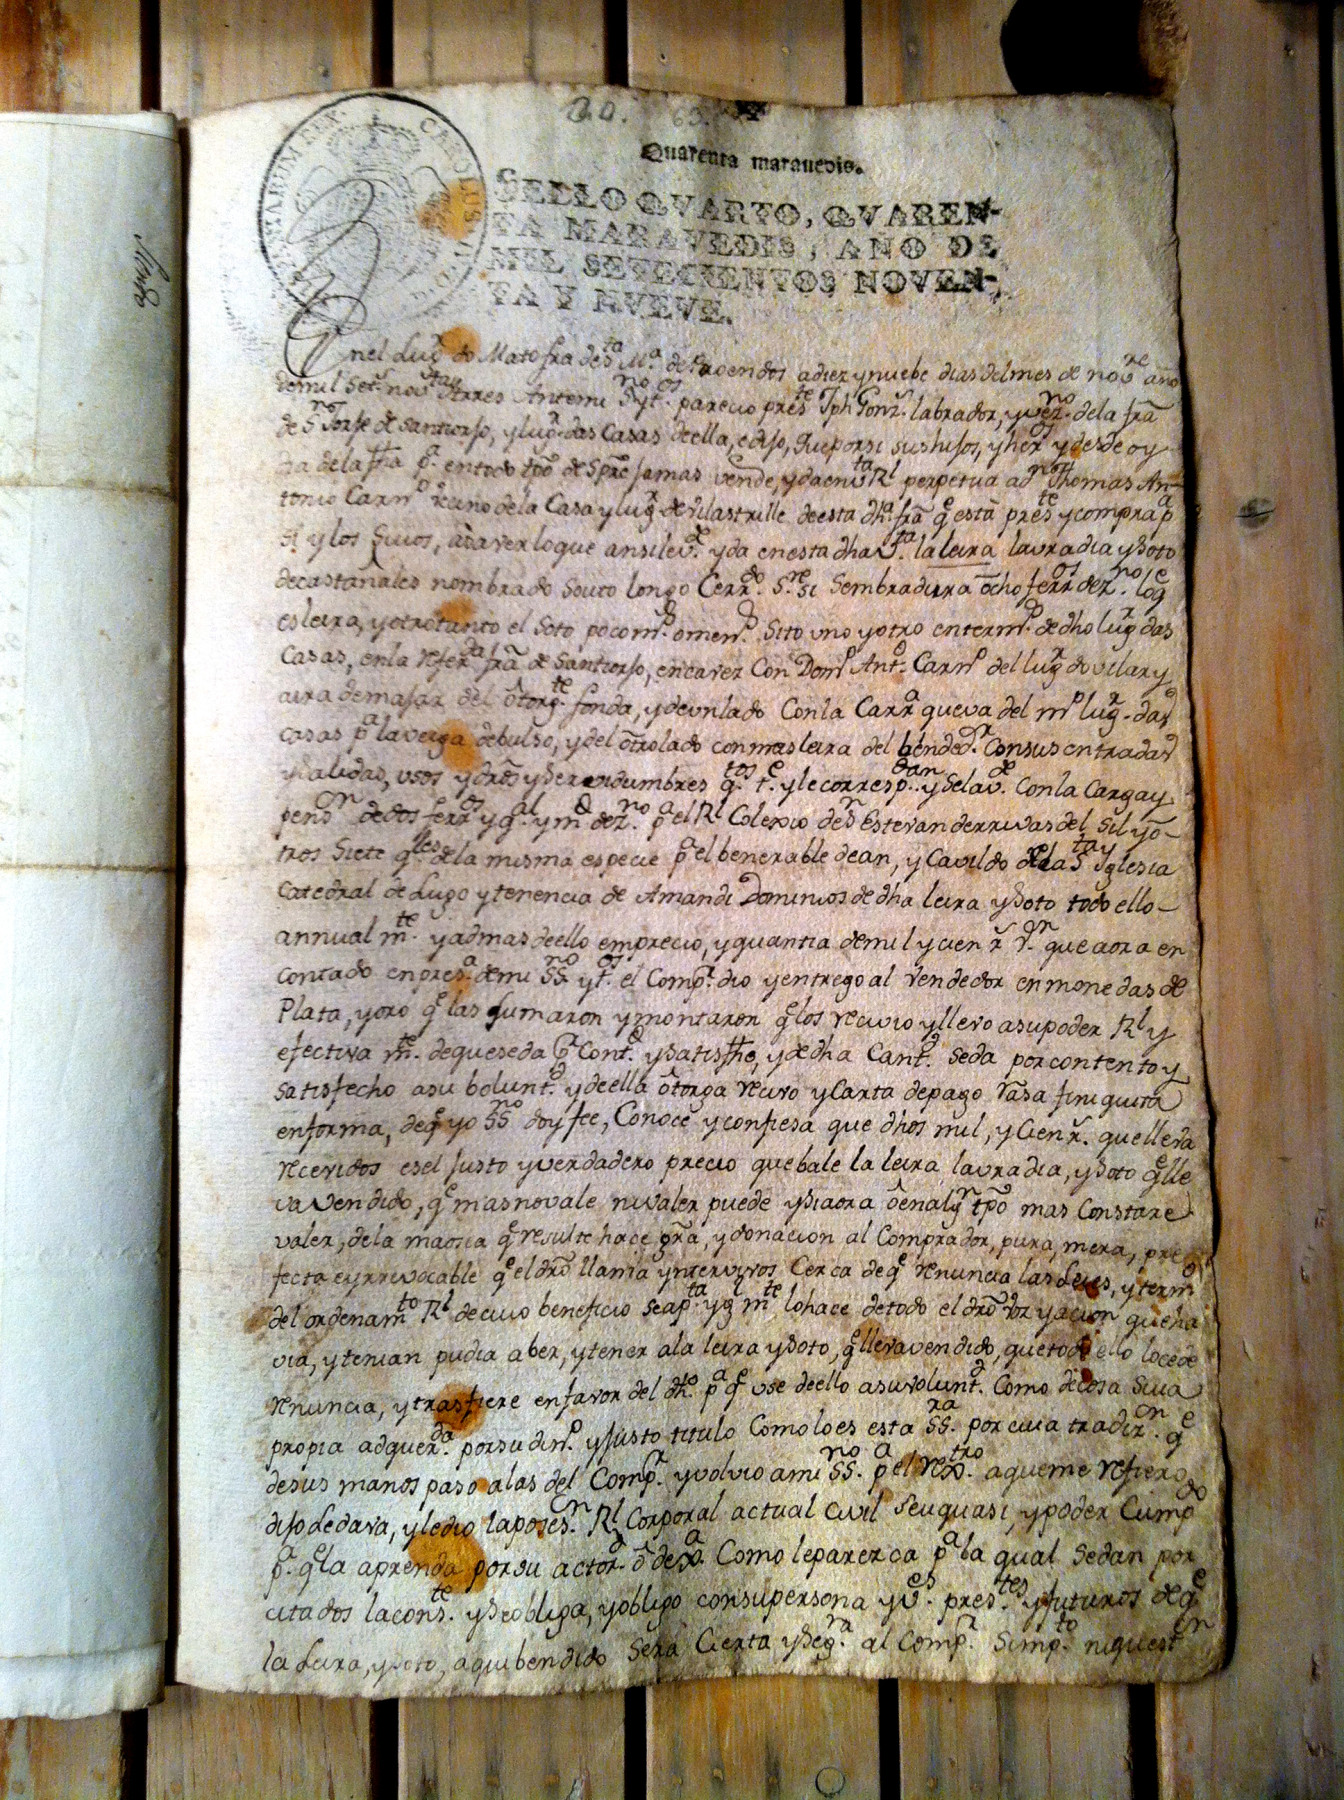 Quarenta maravedis.
SELLO QVARTO, QVAREN-
TA MARAVEDIS, AÑO DE
MIL SETECIENTOS NOVEN-
TA Y NVEVE.
HISPANIARUM REX. CAROLUS IV D. G.
Enel Lugr do Mato fra de Sta Ma de adiez ynuebe dias delmes de novre año
demil Setts novta Antemi Sno yts. parecio preste Jph Gonz. labrador, yvezno. dela fra
de Sn Jorje de Santiorjo, ylugr. das Casas deella, edijo, queporsi sushijos, yheros ydesde oy
dia dela fha pa. entodo tpo de Spre Jamas vende, ydaenvta Rl perpetua a Dn Thomas An-
tonio Carnro vecino dela Casa ylugr de Vilastrille deesta dha fra qe está preste ycomprapa
si ylos Suios, asaverloque ansileve. yda enesta dha vta. la leira lavradia ySoto
decastañales nombrado Souto longo Cerrdo. Sre si Sembradura ocho ferros dezno. loqe
esleira, yotrotanto el Soto pocoms. omens. Sito uno yotro entermo. de dho lugr das
Casas, enla referda fra de Santiorjo, encavez Con Domo Anto. Carnro del lugr dovilar y
aira demajar del otorgte. fonda, ydeunlado Conla Carra queva del mo lugr. das
Casas pa laveiga debulso, ydel otrolado conmasleira del bendedr. Consusentradas
ySalidas, usos ydros yServidumbres qtos te. ylecorrespdan. ySelave. Conla Cargay
penson dedos ferros yqal. ymo dezno. pa el Rl Colexio de Sn Estevan derrivas del Sil yo-
tros Siete qles dela misma especie pa el benerable dean, y Cavildo dela Sta Yglesia
Catedral de Lugo ytenencia de Amandi Dominios de dha leira ySoto todo ello-
annual mte. yadmas deello emprecio, yquantia demil ycien rs Vn. queaora en
contado enpresa. demi SSno yts. el Compr. dio yentrego al Vendedor enmonedas de
Plata, yoro qe las Sumaron ymontaron qelos recivio yllevo asupoder Rl y
efectiva mte. dequeseda pr Contdo. ySatisfho, ydedha Cantd. Seda porcontentoy
Satisfecho asu boluntd. ydeella otorga recivo yCarta depago rasa finiquita
enforma, deqe yo SSno doyfee, Conoce yconfiesa que dhos mil, yCien rs. quelleva
recevidos esel Justo yverdadero precio quebale la leira lavradia, ySoto qe lle
vavendido, qe masnovale nivaler puede ySiaora oenalgn tpo mas Constare
valer, dela masia qe resulte hace gra, ydonacion al Comprador, pura, mera, pre
fecta eyrrevocable qe el dro llama yntervivos Cerca deqe renuncia las Leies, yterms
del ordenamto Rl decuio beneficio Seapta. yql mte lohace detodo el dro voz yacion queha
via, ytenian pudia aber, ytener ala leira ySoto, qe llevavendido, quetodo ello locede
renuncia, ytrasfiere enfavor del dho. pa qe use deello asuvoluntd. Como decosa Suia
propia adquerda. porsu dino. yJusto titulo Comoloes esta SSra. porcuia tradizn. qe
desus manos paso alas del Compr. yvolvio ami SSno. pa el rexotro. aqueme refiero
dijo ledava, yledio laposesn. Rl Corporal actual Civil Seuquasi, ypoder Cumpdo
pa. qe la aprenda porsu actord. o dexa. Como leparezca pa la qual Sedan por
citados laconste. ySeobliga, yobligo consupersona yves. prestes. yfuturos deqe
la Leira, ySoto, aquibendido Sera Cierta ySegra. al Compr. Simpto. niquestn